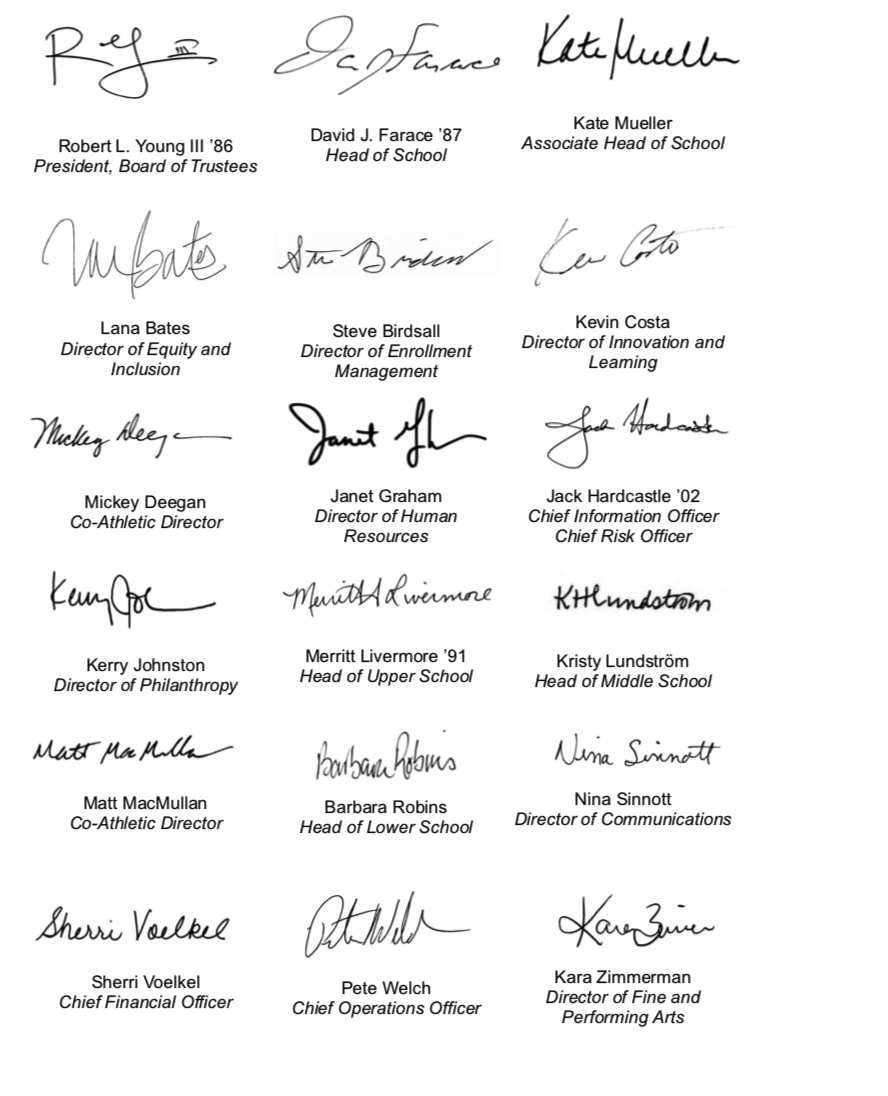 Kate Mueller
Robert L. Young III ’86
President, Board of Trustees
David J. Farace ’87
Head of School
Kate Mueller
Associate Head of School
Bates
Lana Bates
Director of Equity and
Inclusion
Steve Birdsall
Director of Enrollment
Management
Kevin Costa
Director of Innovation and
Learning
Mickey Deeg
Janet
Jack Hardcastle
Mickey Deegan
Co-Athletic Director
Janet Graham
Director of Human
Resources
Jack Hardcastle ’02
Chief Information Officer
Chief Risk Officer
Merritt A Livermore
KHLundstrom
Kerry Johnston
Director of Philanthropy
Merritt Livermore ’91
Head of Upper School
Kristy Lundström
Head of Middle School
Matt MacMulla
Barbara Robins
Nina Sinnott
Matt MacMullan
Co-Athletic Director
Barbara Robins
Head of Lower School
Nina Sinnott
Director of Communications
Sherri Voelkel
Sherri Voelkel
Chief Financial Officer
Pete Welch
Chief Operations Officer
Kara Zimmerman
Director of Fine and
Performing Arts